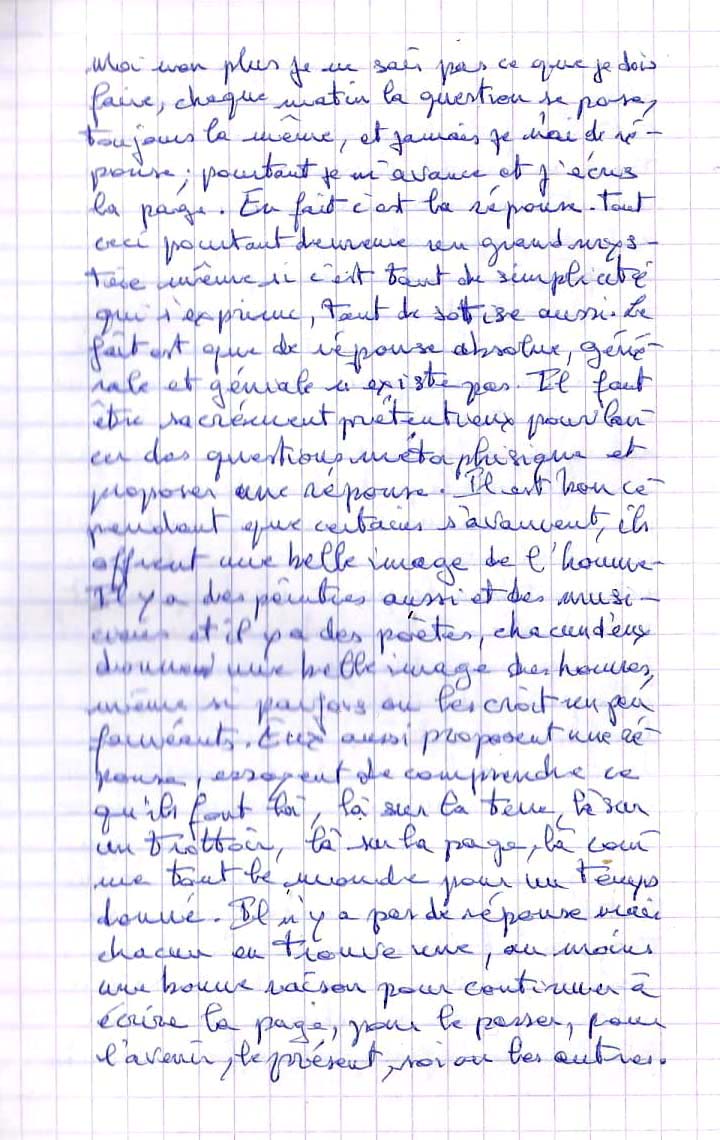 Moi non plus je ne sais pas ce que je dois
faire, chaque matin la question se pose,
toujours la même, et jamais je n'ai de ré-
ponse; pourtant je m'avance et j'écris
la page. En fait c'est la réponse. Tout
ceci pourtant demeure un grand mys-
tère même si c'est tant de simplicité
qui s'exprime, tant de sottise aussi. Le
fait est que de réponse absolue, géné-
rale et géniale n'existe pas. Il faut
être sacrément prétentieux pour lan-
cer des questions métaphisique et
proposer une réponse. Il est bon ce-
pendant que certains s'avancent, ils
offrent une belle image de l'homme.
Il y a des peintres aussi et des musi-
ciens et il y a des poètes, chacun d'eux
donnent une belle image des hommes,
même si parfois on les croit un peu
fainéants. Eux aussi proposent une ré-
ponse, essayent de comprendre ce
qu'ils font là, là sur la terre, là sur
un trottoir, là sur la page, là com-
me tout le monde pour un temps
donné. Il n'y a pas de réponse mais
chacun en trouve une, au moins
une bonne raison pour continuer à
écrire la page, pour le passer, pour
l'avenir, le présent, soi ou les autres.